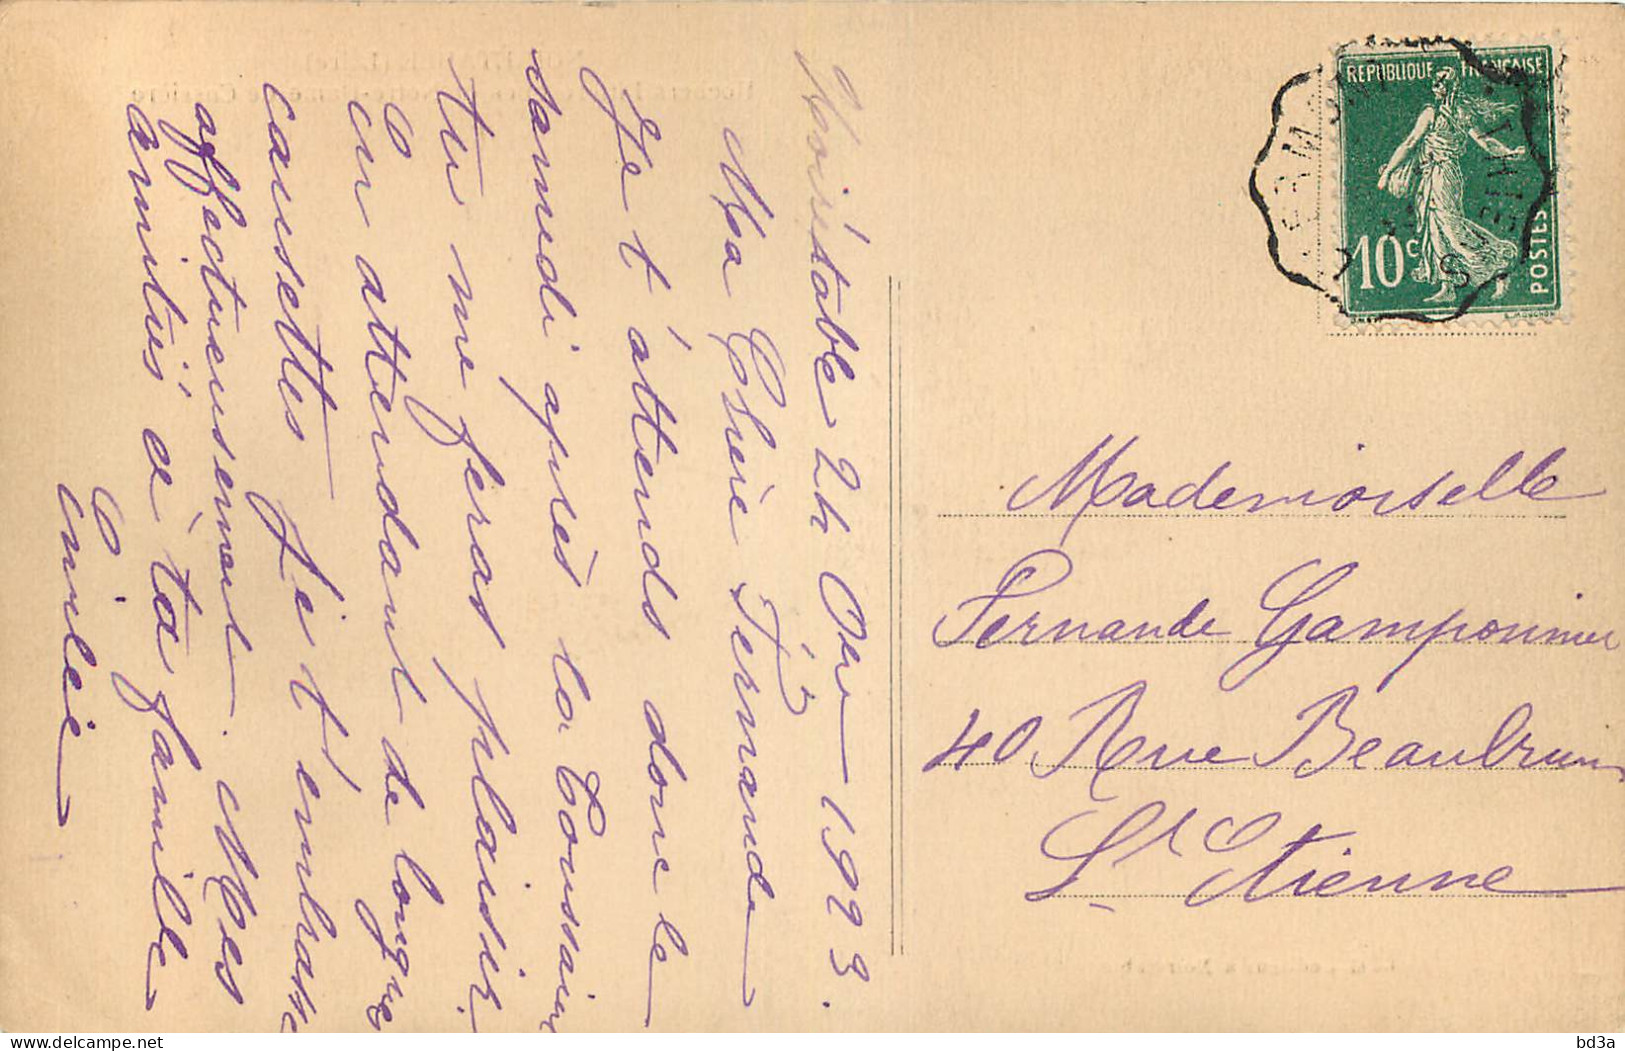 Noirétable 24 Oct 1923.
Ma Chère Fernande
Je t'attends donc le
samedi après la Toussaint
tu me feras plaisir.
En attendant de longues
causettes je t'embrasse
affectueusement. Mes
amitiés à ta famille
RÉPUBLIQUE FRANÇAISE
10c
POSTES
Mademoiselle
Fernande Gamponnier
40 Rue Beaubrun
St Etienne
bd3a